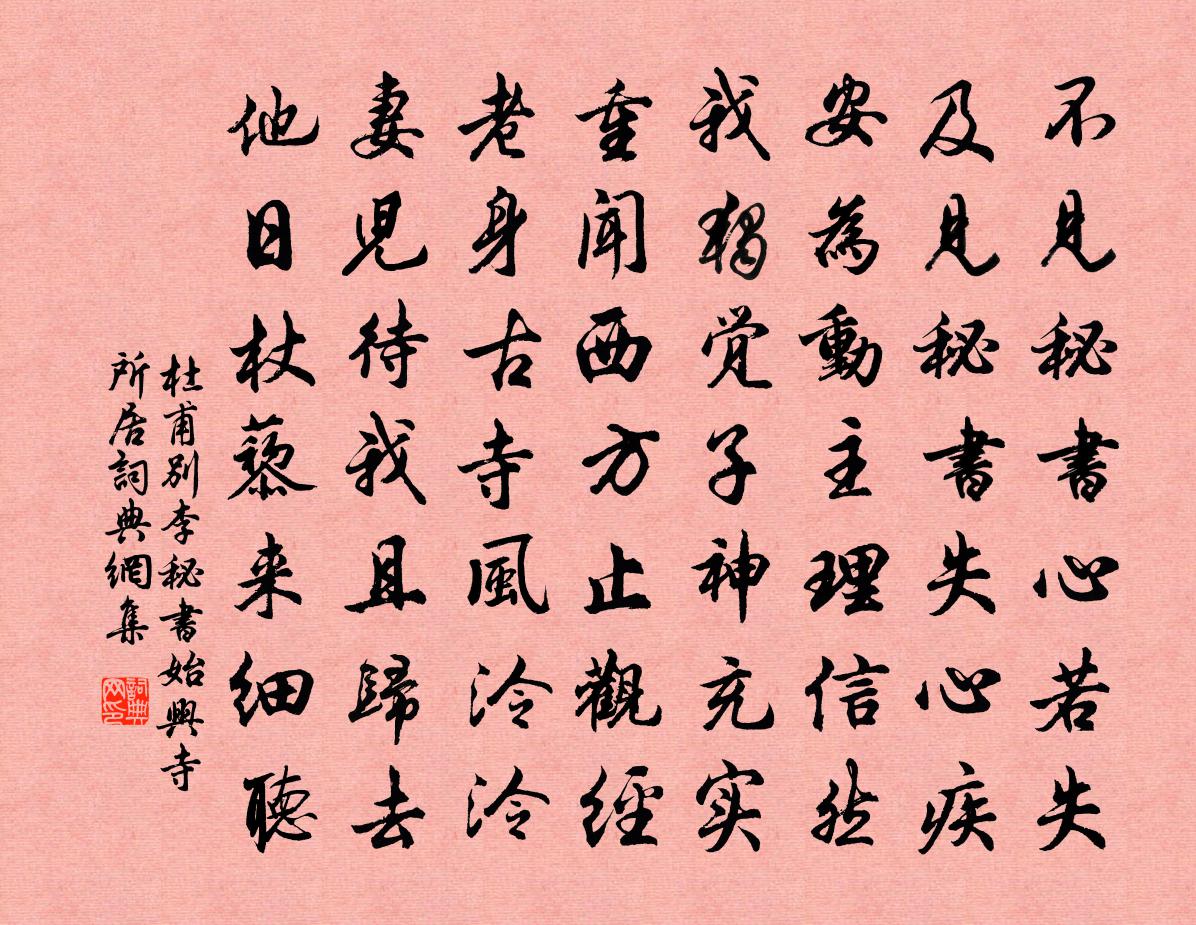 不見秘書心若失
及見秘書失心疾
安為動主理信然
我獨觉子神充实
重闻西方止觀經
老身古寺風泠泠
妻児待我且歸去
他日杖藜来细聽
杜甫別李秘書始興寺
所居詞典網集
詞典网印